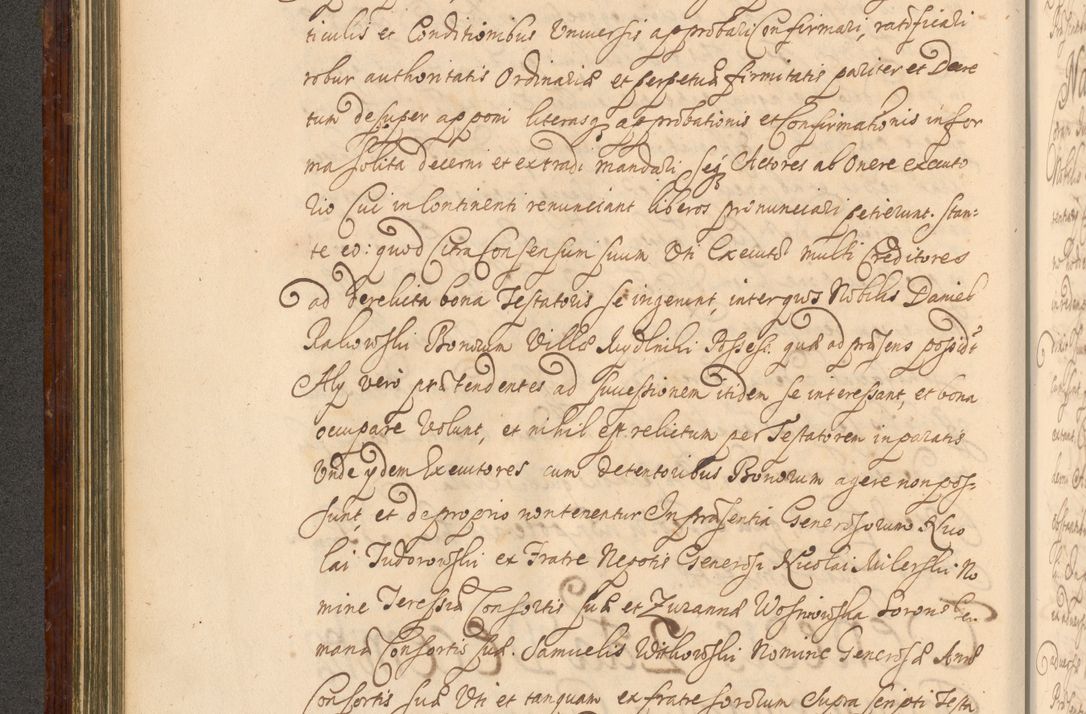 ticulis et Conditionibus Universis approbari Confirmari, ratificari
robur authoritatis Ordinariæ et perpetuæ firmitatis pariter et Decre
tum desuper apponi literasq approbationis et Confirmationis in for
ma solita decerni et extradi mandari seq Actores ab Onere executo
rio Cui in Continenti renunciant liberos pronunciari petierunt. stan:
te eo: quod Citra Consensum suum Uti Execut: multi Creditores
ad derelicta bona Testatoris se ingerunt, inter quos Nobilis Daniel
Rakowski Bonorum Villæ Rydlniki Possess: quæ ad præsens possidt
Aly vero prætendentes ad successionem itidem se interessant, et bona
occupare Volunt, et nihil est relictum per Testatorem in paratis
Unde ydem Executores cum detentoribus Bonorum agere non pos:
sunt, et de proprio non tenentur In præsentia Generosorum Nico
lai Tudorowski ex Fratre Nepotis Generosi Nicolai Milerski No
mine Teressiæ Consortis suæ et Zuzannæ Wosniowska Soro
manæ Consortis suæ. Samuelis Witkowski Nomine Generosæ Annæ
Consortis suæ Uti et tanquam ex fratre sororum supra scripti Testa